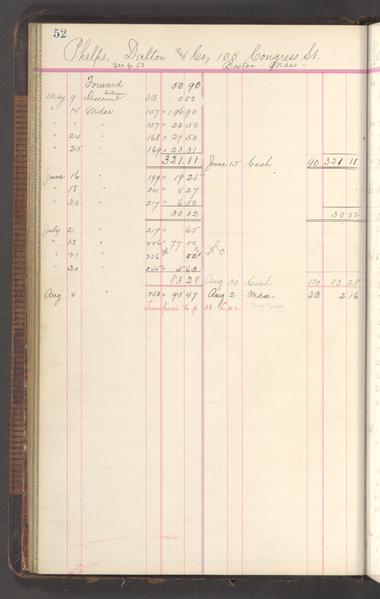 52
Phelps. Dalton & Co, 105 Congress St.
See p. 53 Boston - Mass -
Forward 50 90
May 9 Discount JB 0 00
" 14 Mdse 157 196 90
" " " 157 22 50
" 24 " 168 27 50
" 25 " 169 23 31
321.11 June 15 Cash 90 321 11
June 16 " 199 19 25
" 18 " 201 4 27
" 30 " 217 6 50
30 02 30 02
July 2 " 219 65
" 13 " 77 00
" 21 " 236
" 30 " 5 63
83 28 Aug 30 Cash 130 83 28
Aug 4 " 250 95 47 Aug 2 Mdse - JB 2 16
Transferred to p 53